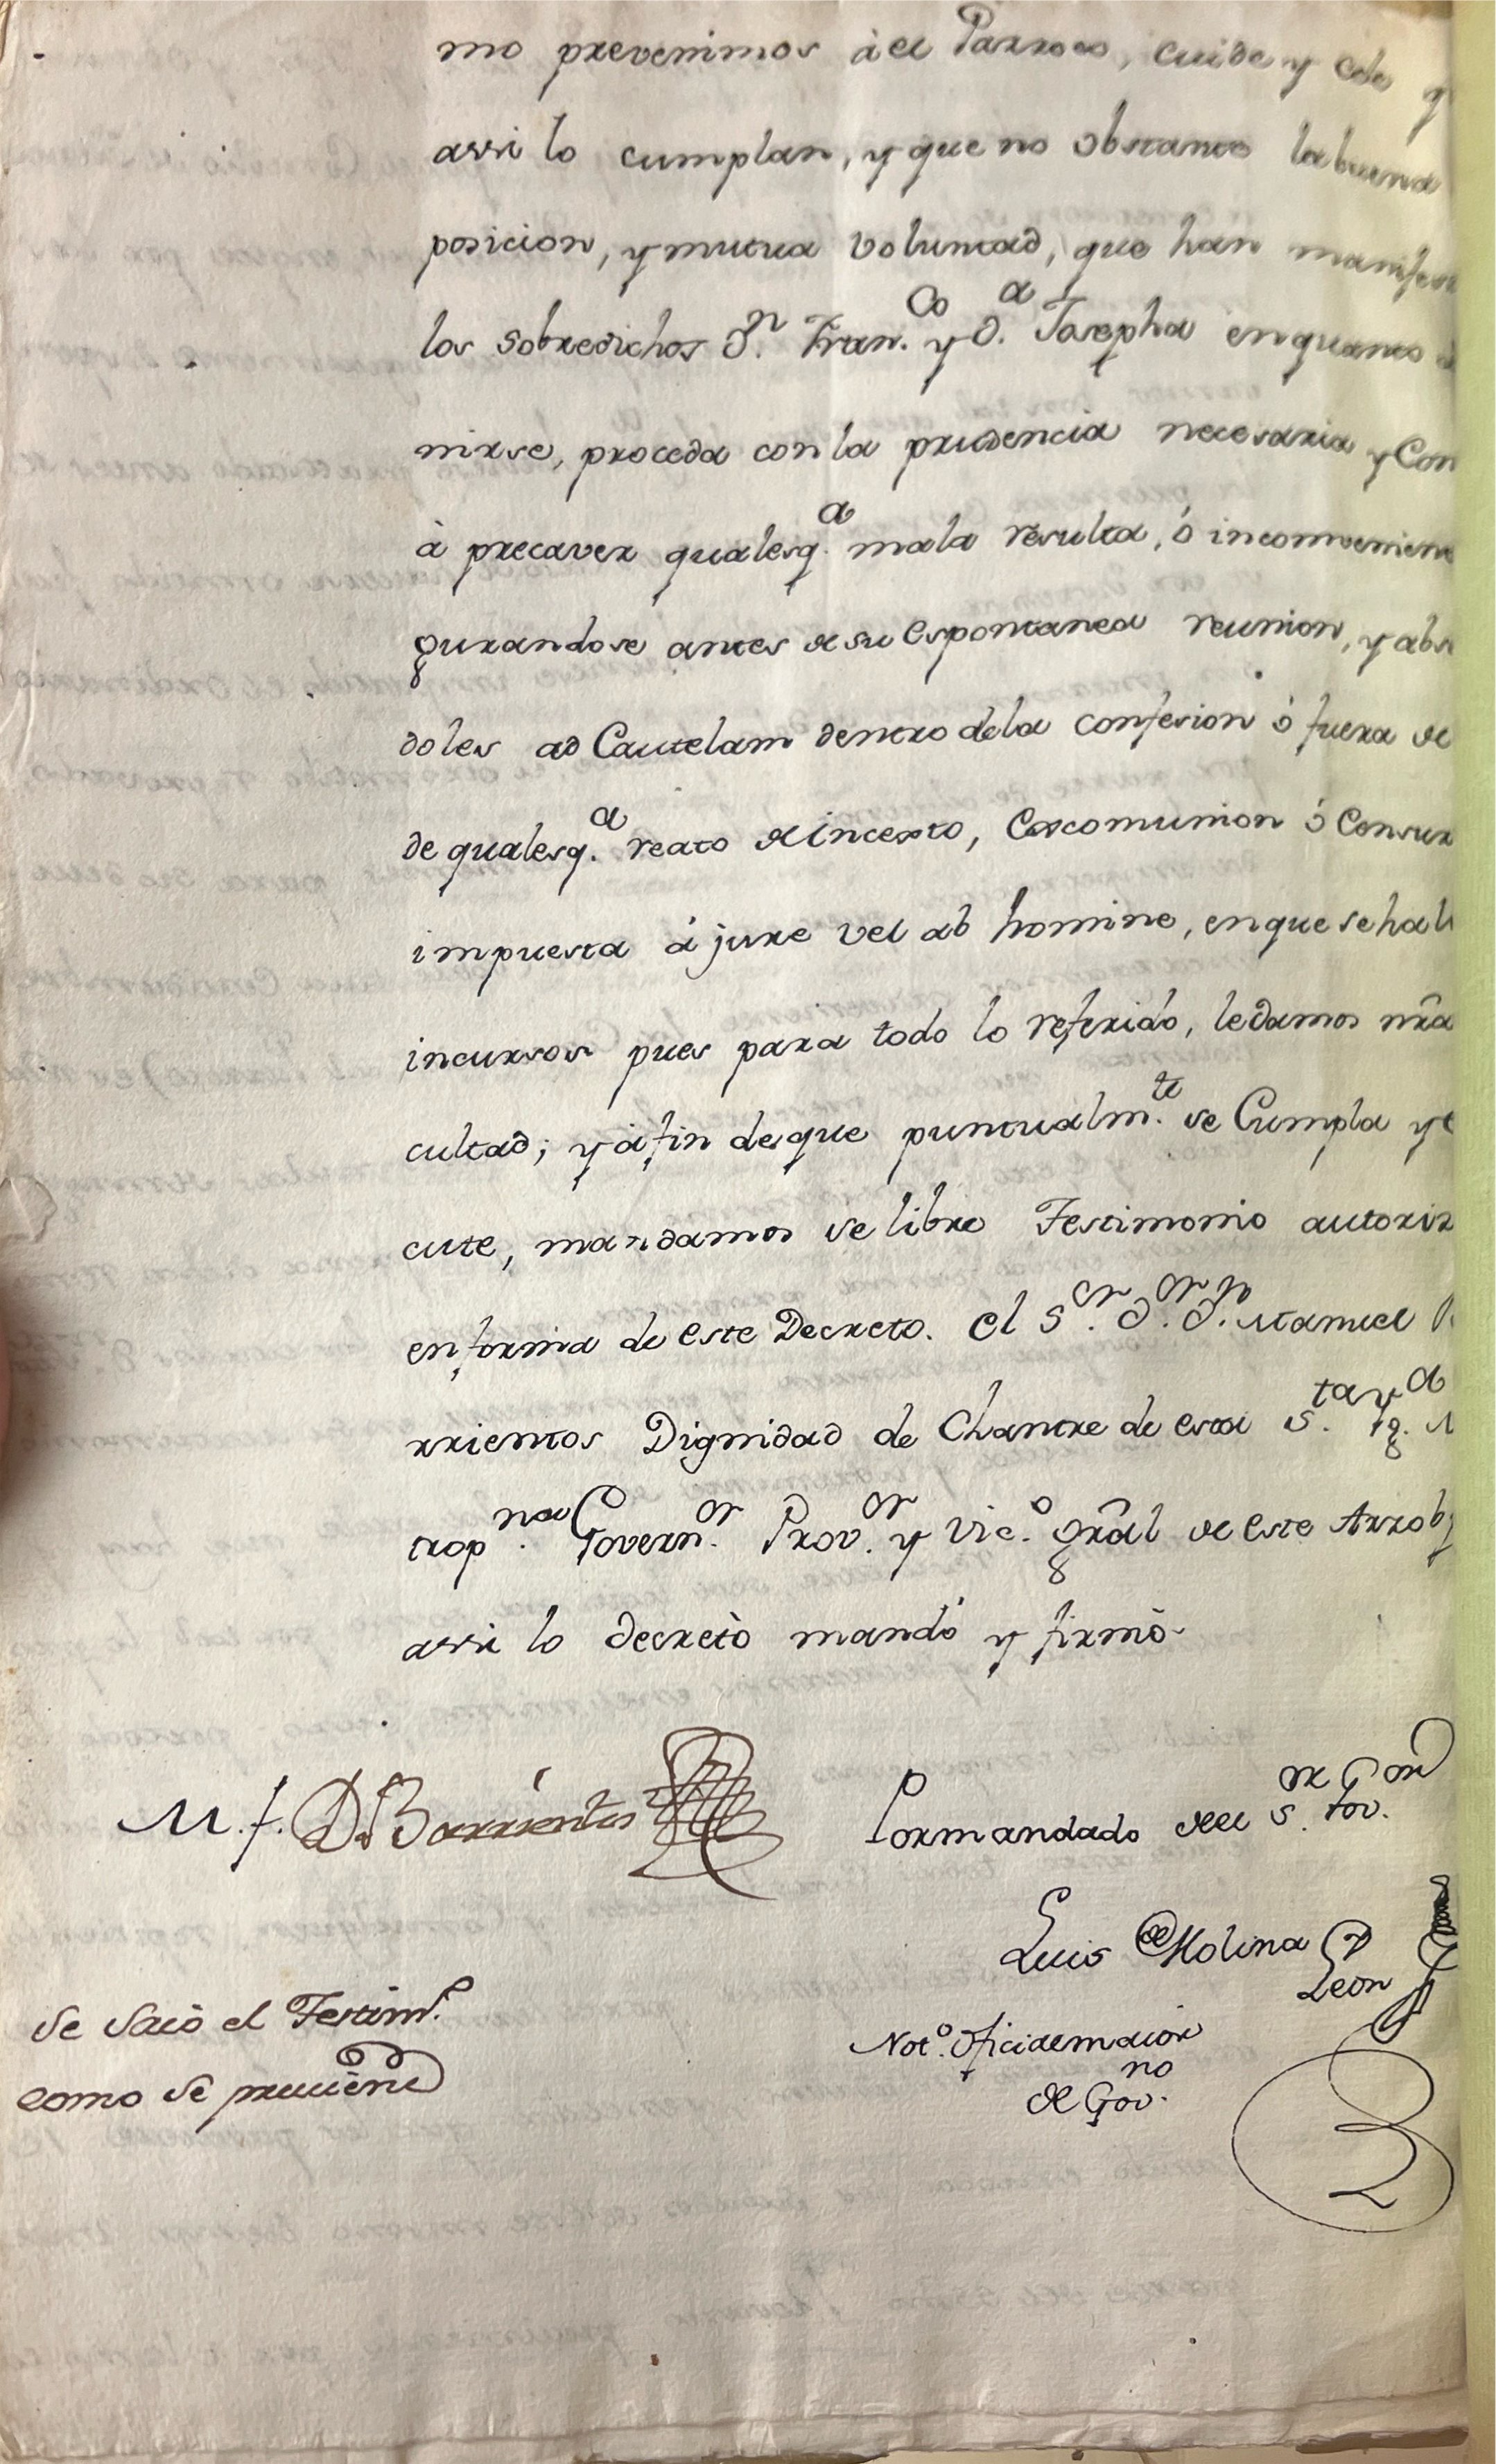 mo prevenimos à el Parroco, cuide y cele q
assi lo cumplan, y que no obstante la buena
posicion, y mutua voluntad, que han manifest
los sobredichos D.n Fran.co y D.a Josepha en quanto à
nirse, proceda con la prudencia necesaria y Con
à precaver qualesq.a mala resulta, ó inconvenien
gurandose antes de su espontanea reunion, y abs
doles ad Cautelam dentro de la confesion ó fuera de
de qualesq.a reato de incesto, Excomunion ó Censur
impuesta á jure vel ab homine, en que se hall
incursos pues para todo lo referido, le damos nrâ
cultad; y à fin des que puntualm.te se Cumpla y e
cute, mandamos se libre Testimonio autoriz
en forma de este Decreto. El S.or D.or D.n Manuel
rrientos Dignidad de Chantre de esta S.ta Yg.a M
trop.na Govern.or Prov.or y Vic.o grâl de este Arzobp
assi lo decretò mandó y firmò
M. f. D.r Barrientos
Por mandado del S.or Gov.or
Luis de Molina y
Leon
Not.o oficial maior
de Gov.no
Se sacó el Testim.o
como se previene